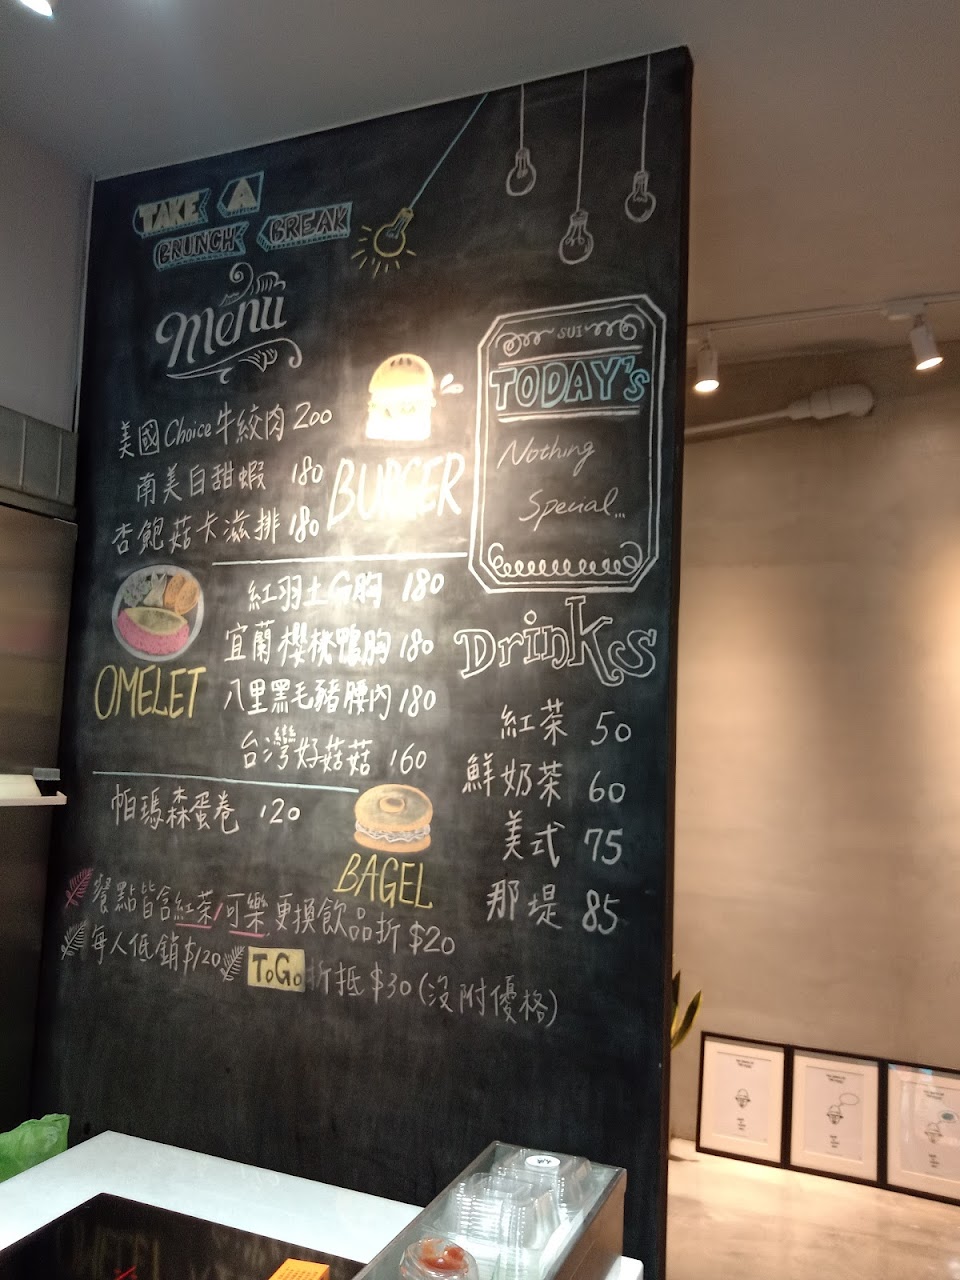 TAKE A
BRUNCH BREAK
Menu
美國Choice牛絞肉 200
南美白甜蝦 180
杏鮑菇卡滋排 180
BURGER
紅羽土G胸 180
宜蘭櫻桃鴨胸 180
八里黑毛豬腰內 180
台灣好菇菇 160
OMELET
帕瑪森蛋卷 120
BAGEL
SUI
TODAY's
Nothing
Special...
Drinks
紅茶 50
鮮奶茶 60
美式 75
那堤 85
餐點皆含紅茶/可樂,更換飲品折$20
每人低銷$120
ToGo折抵$30(沒附優格)